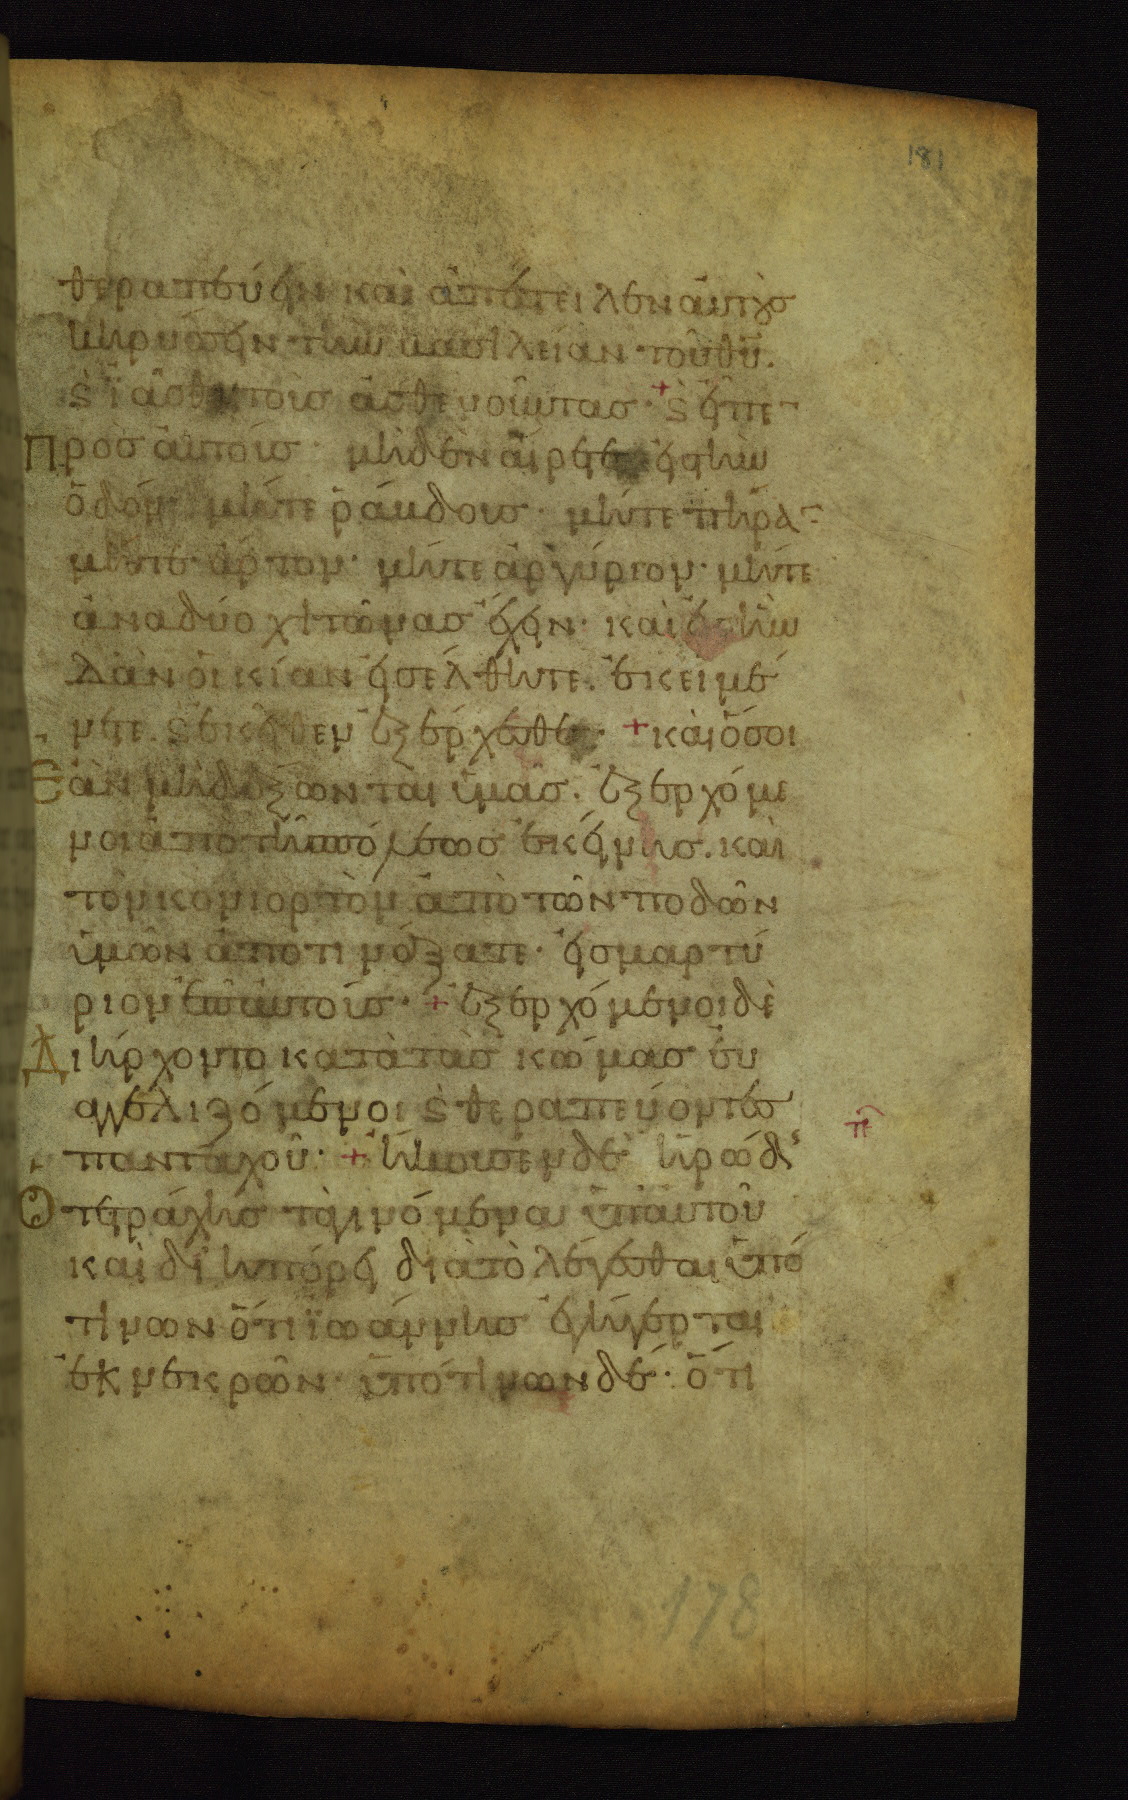 181
θεραπεύειν καὶ ἀπέστειλεν αὐτοὺσ
κηρύσσειν τὴν βασιλείαν τοῦ θῦ.
ϛ ἰᾶσθαι τοὺσ ἀσθενοῦντασ. + ϛ εἶπε
πρὸσ αὐτούσ· μηδὲν αἴρετε εἰσ τὴν
ὁδόν· μήτε ῥάβδουσ· μήτε πήρα
μήτε ἄρτον· μήτε ἀργύριον· μήτε
ἀνὰ δύο χιτῶνασ ἔχειν· καὶ εἰσ ἣν
ἂν οἰκίαν εἰσέλθητε. ἐκεῖ μέ
νετε. ϛ ἐκεῖθεν ἐξέρχεσθε· + καὶ ὅσοι
ἐὰν μὴ δέξωνται ὑμᾶσ. ἐξερχόμε
νοι ἀπὸ τῆσ πόλεωσ ἐκείνησ. καὶ
τὸν κονιορτὸν ἀπὸ τῶν ποδῶν
ὑμῶν ἀποτινάξατε· εἰσ μαρτύ
ριον ἐπ αὐτούσ· + ἐξερχόμενοι δὲ
διήρχοντο κατὰ τὰσ κώμασ εὐ
αγγελιζόμενοι ϛ θεραπεύοντεσ
πανταχοῦ· + ἤκουσεν δὲ ἡρώδησ
π
ὁ τετράχησ τὰ γινόμενα ὑπ αὐτοῦ
καὶ διηπόρει διὰ τὸ λέγεσθαι ὑπό
τινων ὅτι ἰωάννησ ἐγήγερται
ἐκ νεκρῶν· ὑπό τινων δέ· ὅτι
178